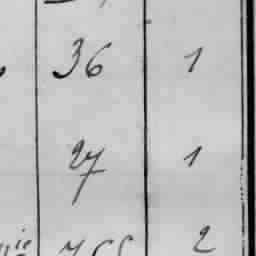 36 1
27 1
2